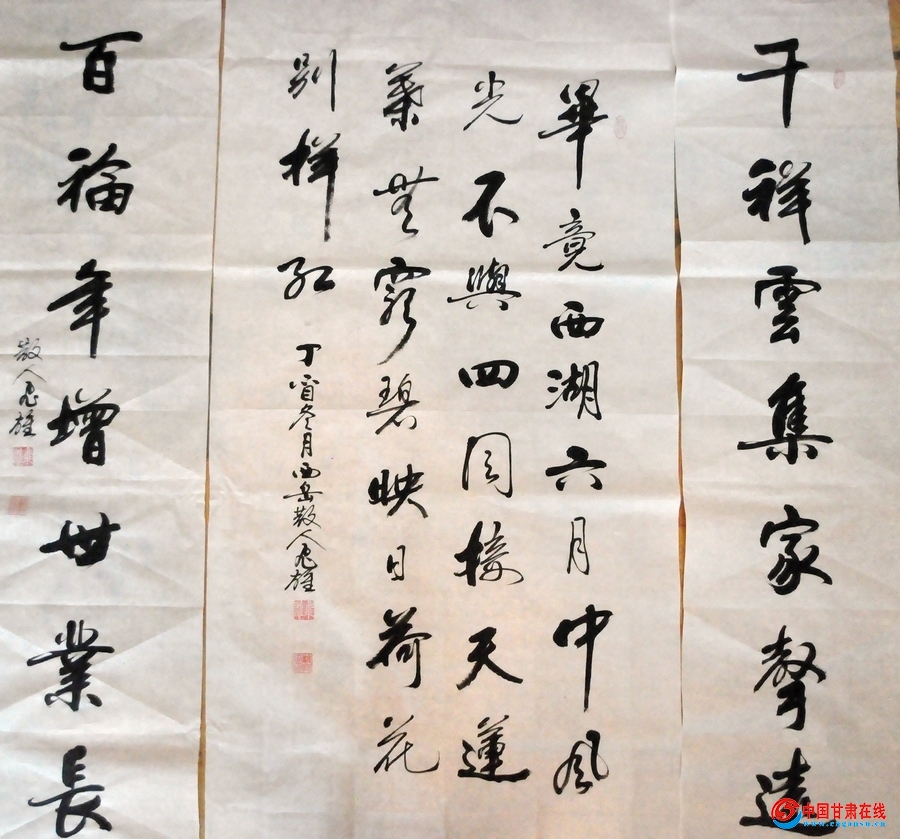 千祥雲集家聲遠
畢竟西湖六月中風
光不與四同接天蓮
葉無窮碧映日荷花
別樣紅
丁酉冬月西岳散人雄
百福年增世業長
散人雄
中国甘肃在线
www.cngansu.cn